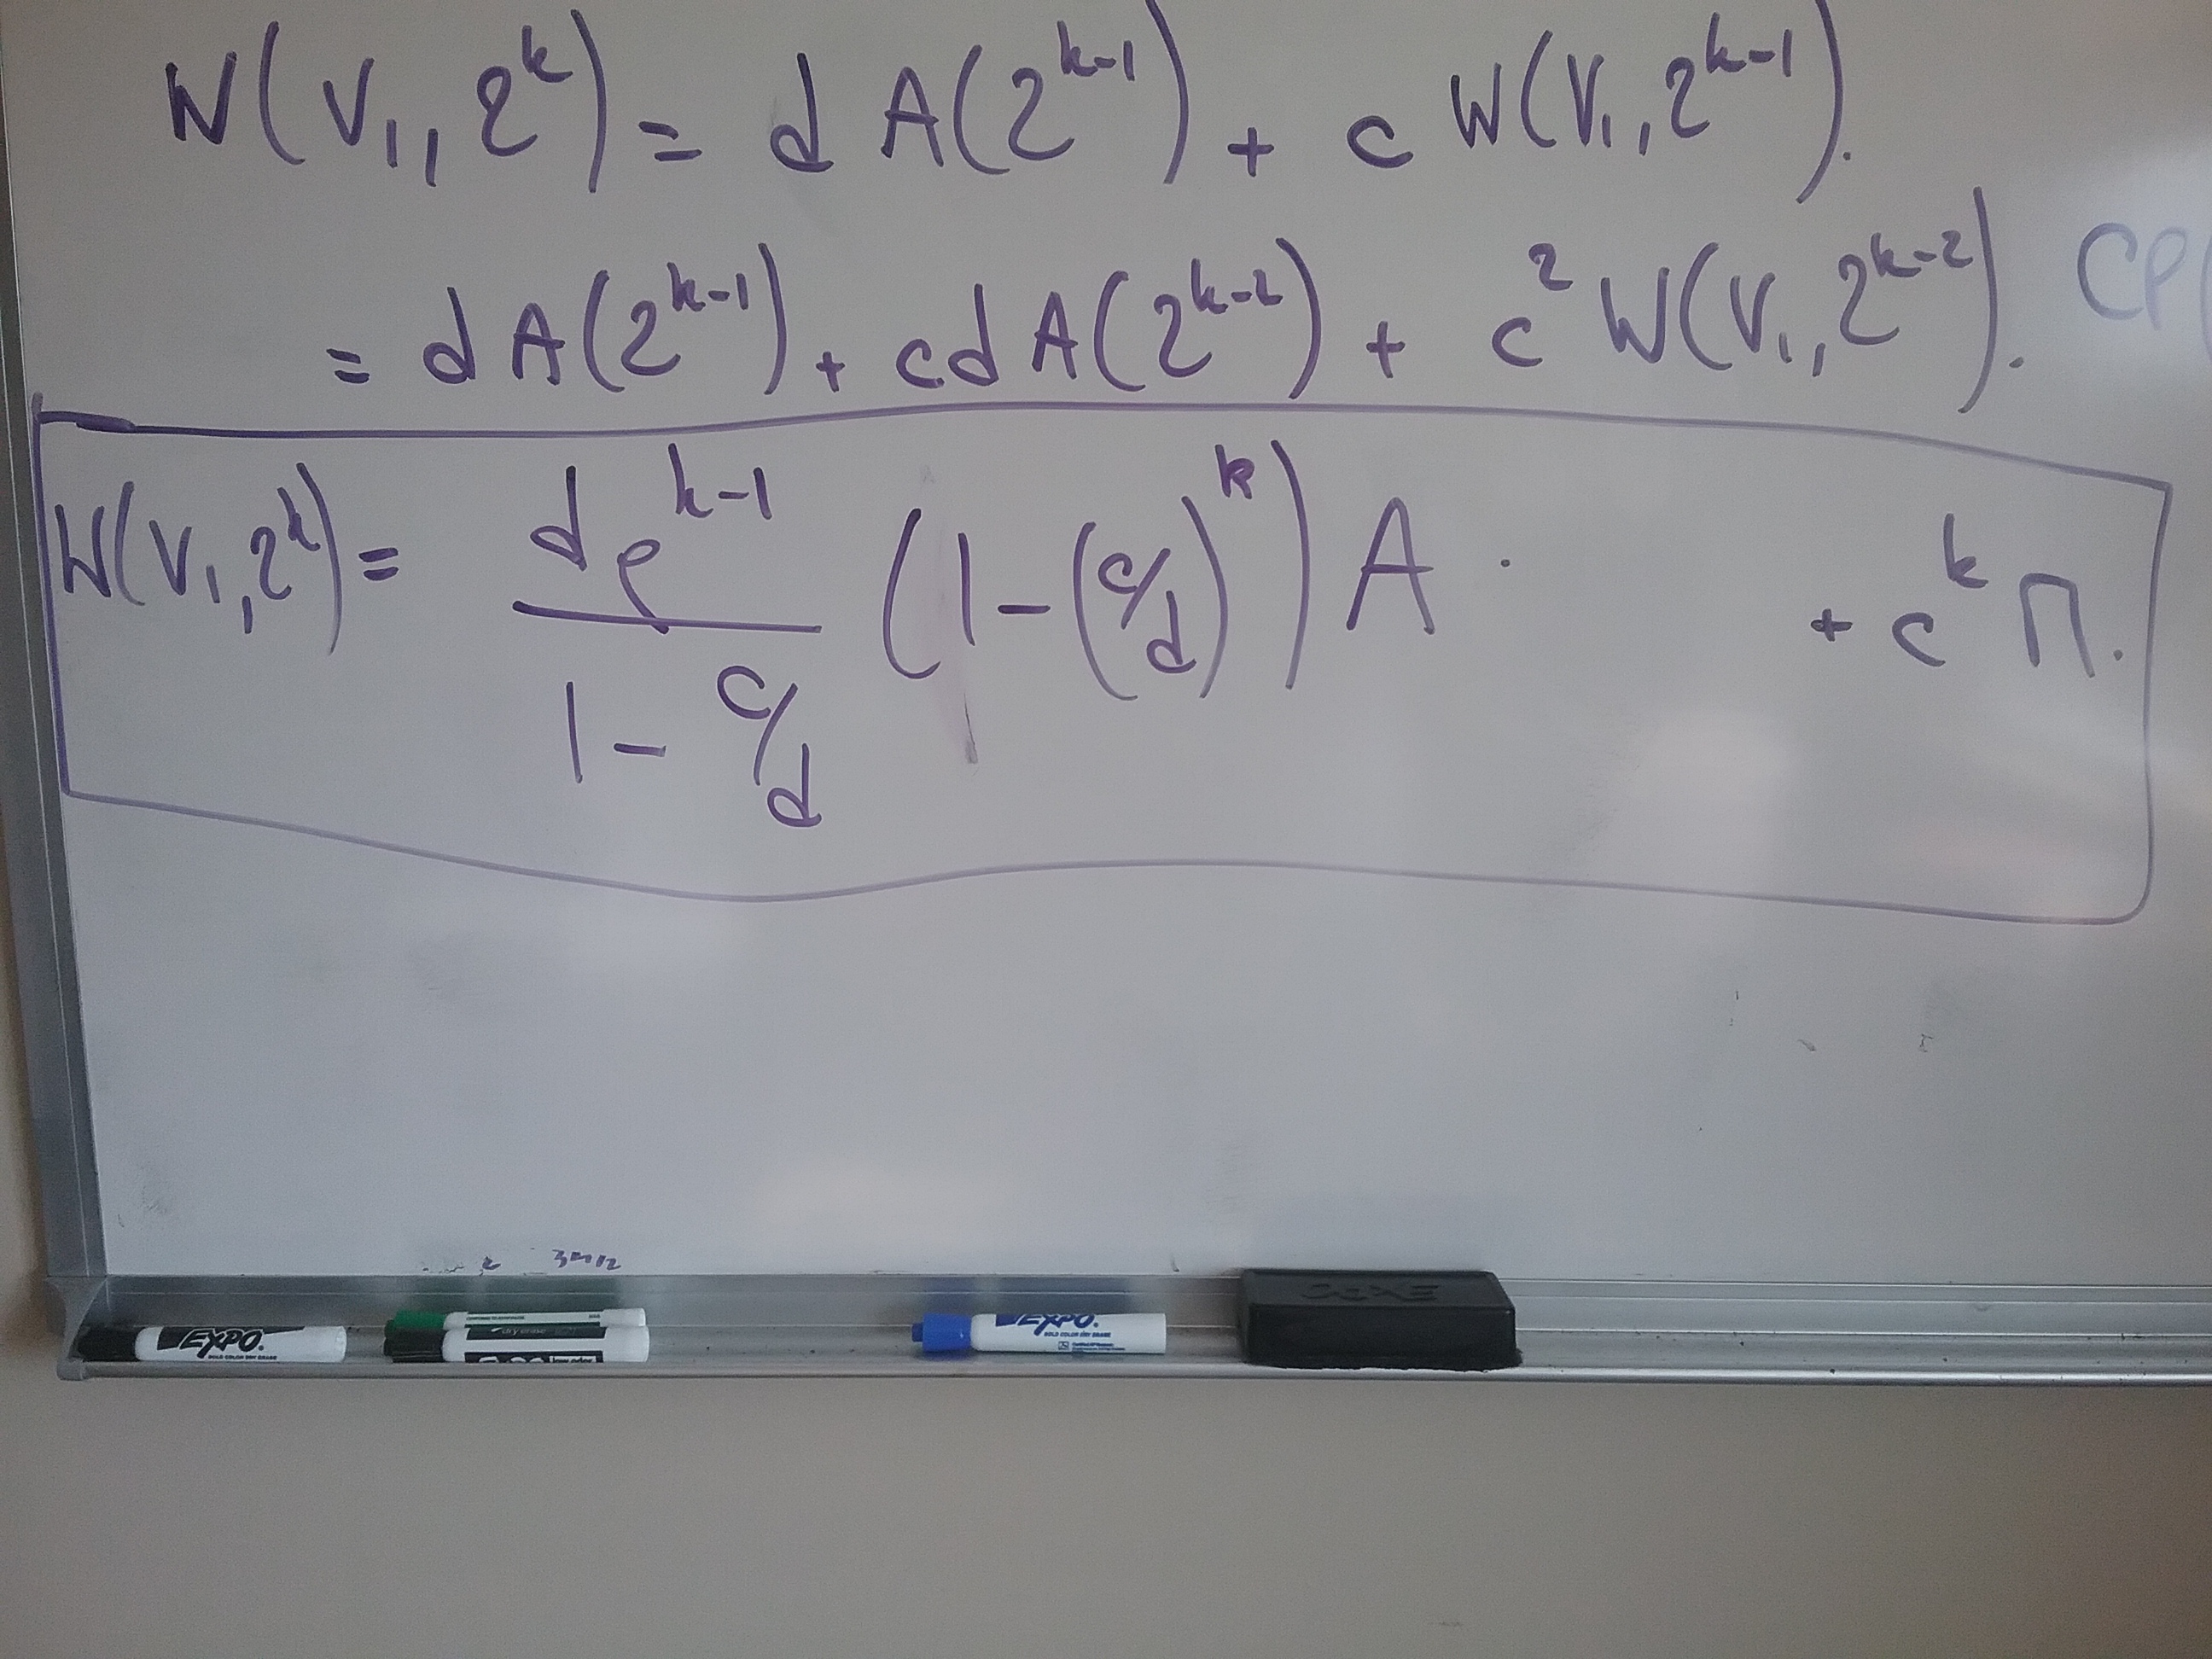 W(V₁, 2^k) = d A(2^{k-1}) + c W(V₁, 2^{k-1}).
= d A(2^{k-1}) + cd A(2^{k-2}) + c² W(V₁, 2^{k-2}). CP(
W(V₁, 2^k) = \frac{d ρ^{k-1}}{1 - c/d} (1 - (c/d)^k) A · + c^k Π.
EXPO
BOLD COLOR DRY ERASE
dry erase
low odor
EXPO
BOLD COLOR DRY ERASE
EXPO